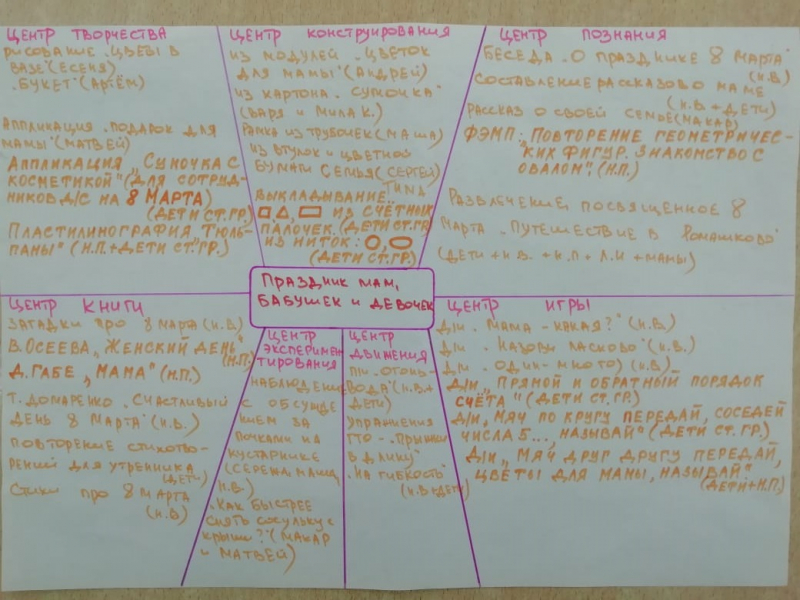 ЦЕНТР ТВОРЧЕСТВА
РИСОВАНИЕ „ЦВЕТЫ В
ВАЗЕ"(ЕСЕНЯ)
„БУКЕТ"(АРТЁМ)
АППЛИКАЦИЯ „ПОДАРОК ДЛЯ
МАМЫ"(МАТВЕЙ)
АППЛИКАЦИЯ „СУМОЧКА С
КОСМЕТИКОЙ"(ДЛЯ СОТРУД-
НИКОВ Д/С НА 8 МАРТА)
(ДЕТИ СТ.ГР)
ПЛАСТИЛИНОГРАФИЯ „ТЮЛЬ-
ПАНЫ" (Н.П.+ДЕТИ СТ.ГР.)
ЦЕНТР КОНСТРУИРОВАНИЯ
ИЗ МОДУЛЕЙ „ЦВЕТОК
ДЛЯ МАМЫ"(АНДРЕЙ)
ИЗ КАРТОНА „СУМОЧКА"
(ВАРЯ И МИЛА К.)
РАМКА ИЗ ТРУБОЧЕК(МАША)
ИЗ ВТУЛОК И ЦВЕТНОЙ
БУМАГИ СЕМЬЯ(СЕРГЕЙ)
ТИПА
ВЫКЛАДЫВАНИЕ
ИЗ СЧЁТНЫХ
ПАЛОЧЕК.(ДЕТИ СТ.ГР)
ИЗ НИТОК:
(ДЕТИ СТ.ГР.)
ЦЕНТР ПОЗНАНИЯ
БЕСЕДА „О ПРАЗДНИКЕ 8 МАРТА"
(Н.В.)
СОСТАВЛЕНИЕ РАССКАЗОВ О МАМЕ
(Н.В.+ДЕТИ)
РАССКАЗ О СВОЕЙ СЕМЬЕ(МАКАР)
ФЭМП „ПОВТОРЕНИЕ ГЕОМЕТРИЧЕС-
КИХ ФИГУР. ЗНАКОМСТВО С
ОВАЛОМ".(Н.П.)
РАЗВЛЕЧЕНИЕ, ПОСВЯЩЕННОЕ 8
МАРТА „ПУТЕШЕСТВИЕ В РОМАШКОВО"
(ДЕТИ + Н.В. + Н.П + Л.И + МАМЫ)
ПРАЗДНИК МАМ,
БАБУШЕК И ДЕВОЧЕК
ЦЕНТР КНИГИ
ЗАГАДКИ ПРО 8 МАРТА (Н.В.)
В.ОСЕЕВА „ЖЕНСКИЙ ДЕНЬ"
(Н.П.)
Д.ГАБЕ „МАМА" (Н.П.)
Т. ДОМАРЕНКО „СЧАСТЛИВЫЙ
ДЕНЬ 8 МАРТА" (Н.В.)
ПОВТОРЕНИЕ СТИХОТВО-
РЕНИЙ ДЛЯ УТРЕННИКА
(ДЕТИ)
СТИХИ ПРО 8 МАРТА
(Н.В)
ЦЕНТР
ЭКСПЕРИМЕН
ТИРОВАНИЯ
НАБЛЮДЕНИЕ
С ОБСУЖДЕ
НИЕМ ЗА
ПОЧКАМИ НА
КУСТАРНИКЕ
(СЕРЁЖА, МАША,
Н.В.)
„КАК БЫСТРЕЕ
СНЯТЬ СОСУЛЬКУ С
КРЫШИ?"(МАКАР
И МАТВЕЙ)
ЦЕНТР
ДВИЖЕНИЯ
П/И „ОГОНЬ-
ВОДА"(Н.В+
ДЕТИ)
УПРАЖНЕНИЯ
ГТО - „ПРЫЖКИ
В ДЛИНУ"
„НА ГИБКОСТЬ"
(Н.В+ДЕТИ)
ЦЕНТР ИГРЫ
Д/И „МАМА - КАКАЯ?" (Н.В.)
Д/И „НАЗОВИ ЛАСКОВО" (Н.В.)
Д/И „ОДИН - МНОГО) (Н.В)
Д/И „ПРЯМОЙ И ОБРАТНЫЙ ПОРЯДОК
СЧЁТА" (ДЕТИ СТ.ГР.)
Д/И „МЯЧ ПО КРУГУ ПЕРЕДАЙ, СОСЕДЕЙ
ЧИСЛА 5..., НАЗЫВАЙ" (ДЕТИ СТ. ГР.)
Д/И „МЯЧ ДРУГ ДРУГУ ПЕРЕДАЙ,
ЦВЕТЫ ДЛЯ МАМЫ, НАЗЫВАЙ"
(ДЕТИ+Н.П.)